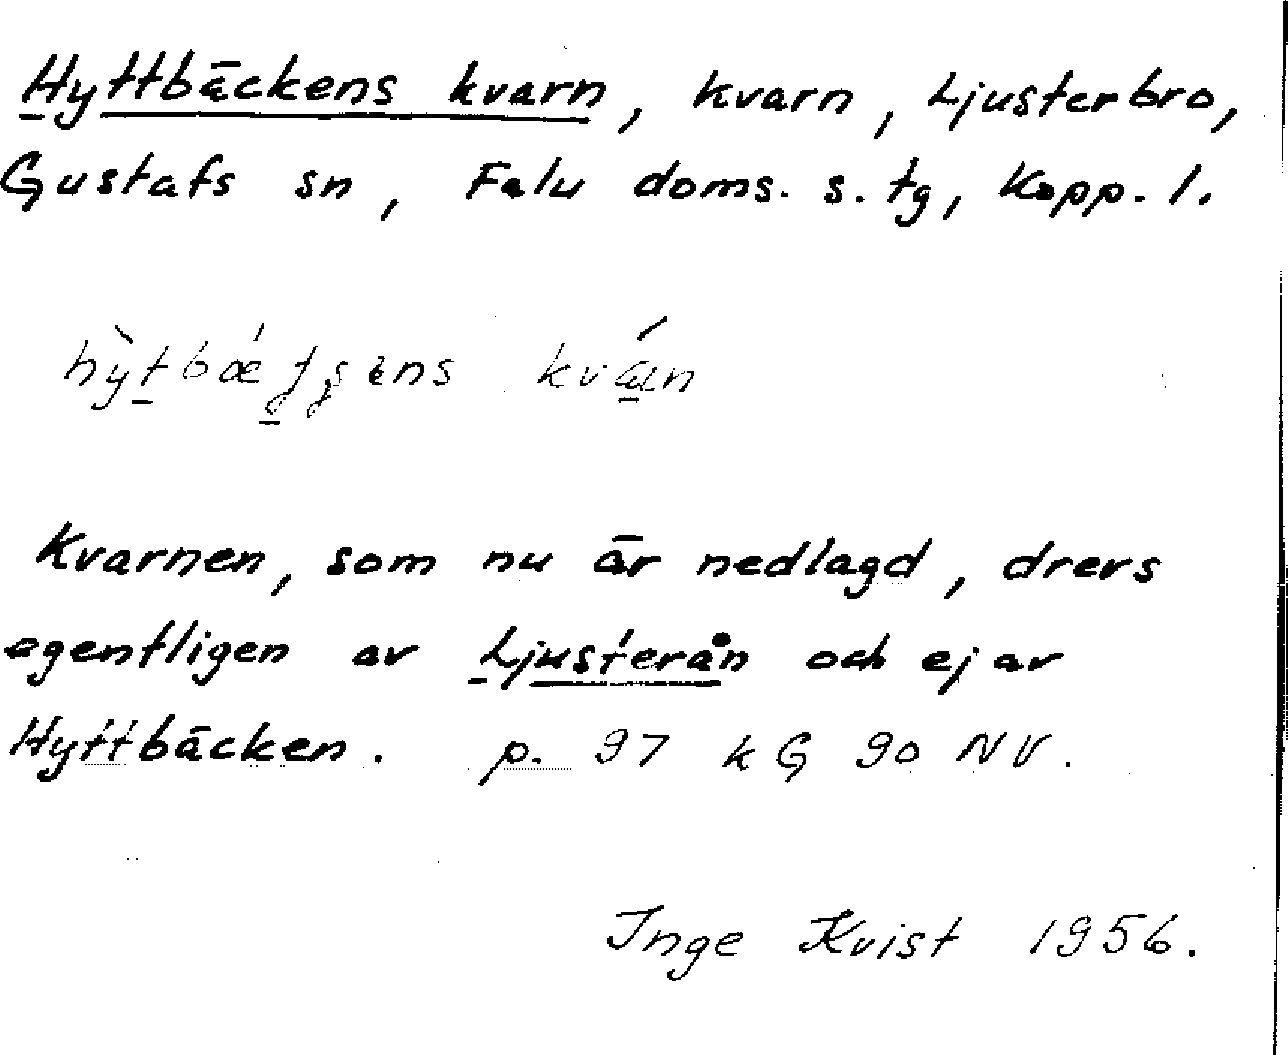 Hyttbäckens kvarn, kvarn, Ljusterbro,
Gustafs sn, Falu doms. s. tg, Kopp. l.
Kvarnen, som nu är nedlagd, drevs
egentligen av Ljusterån och ej av
Hyttbäcken. p. 97 k G 90 NV.
Inge Kvist 1956.